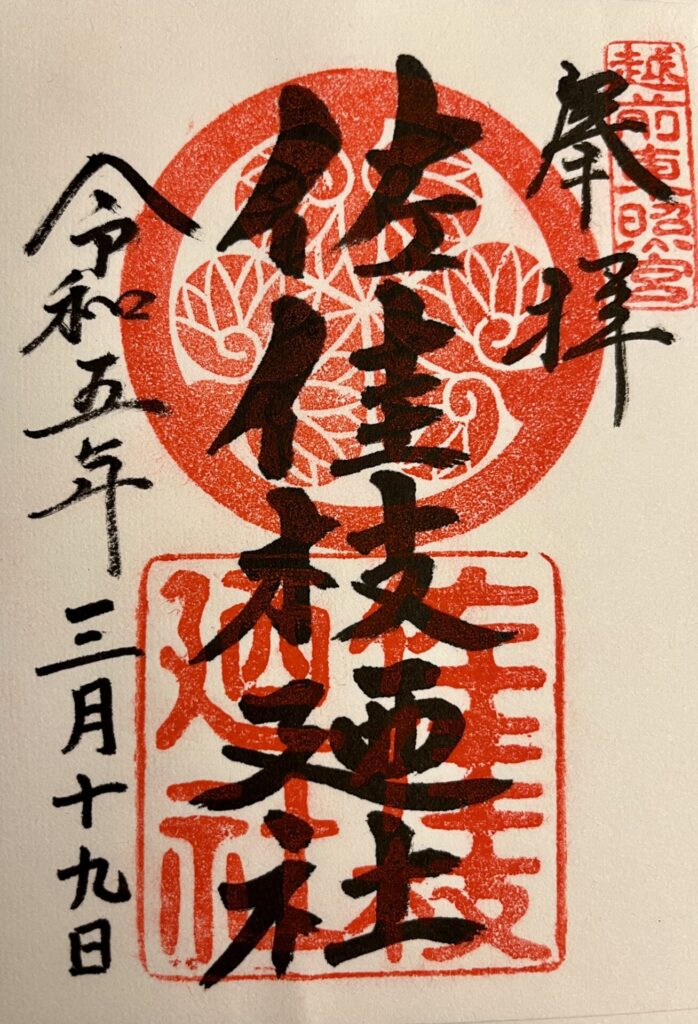 越前東照宮
奉拝
佐佳枝廼社
佐佳枝
廼社
令和五年三月十九日